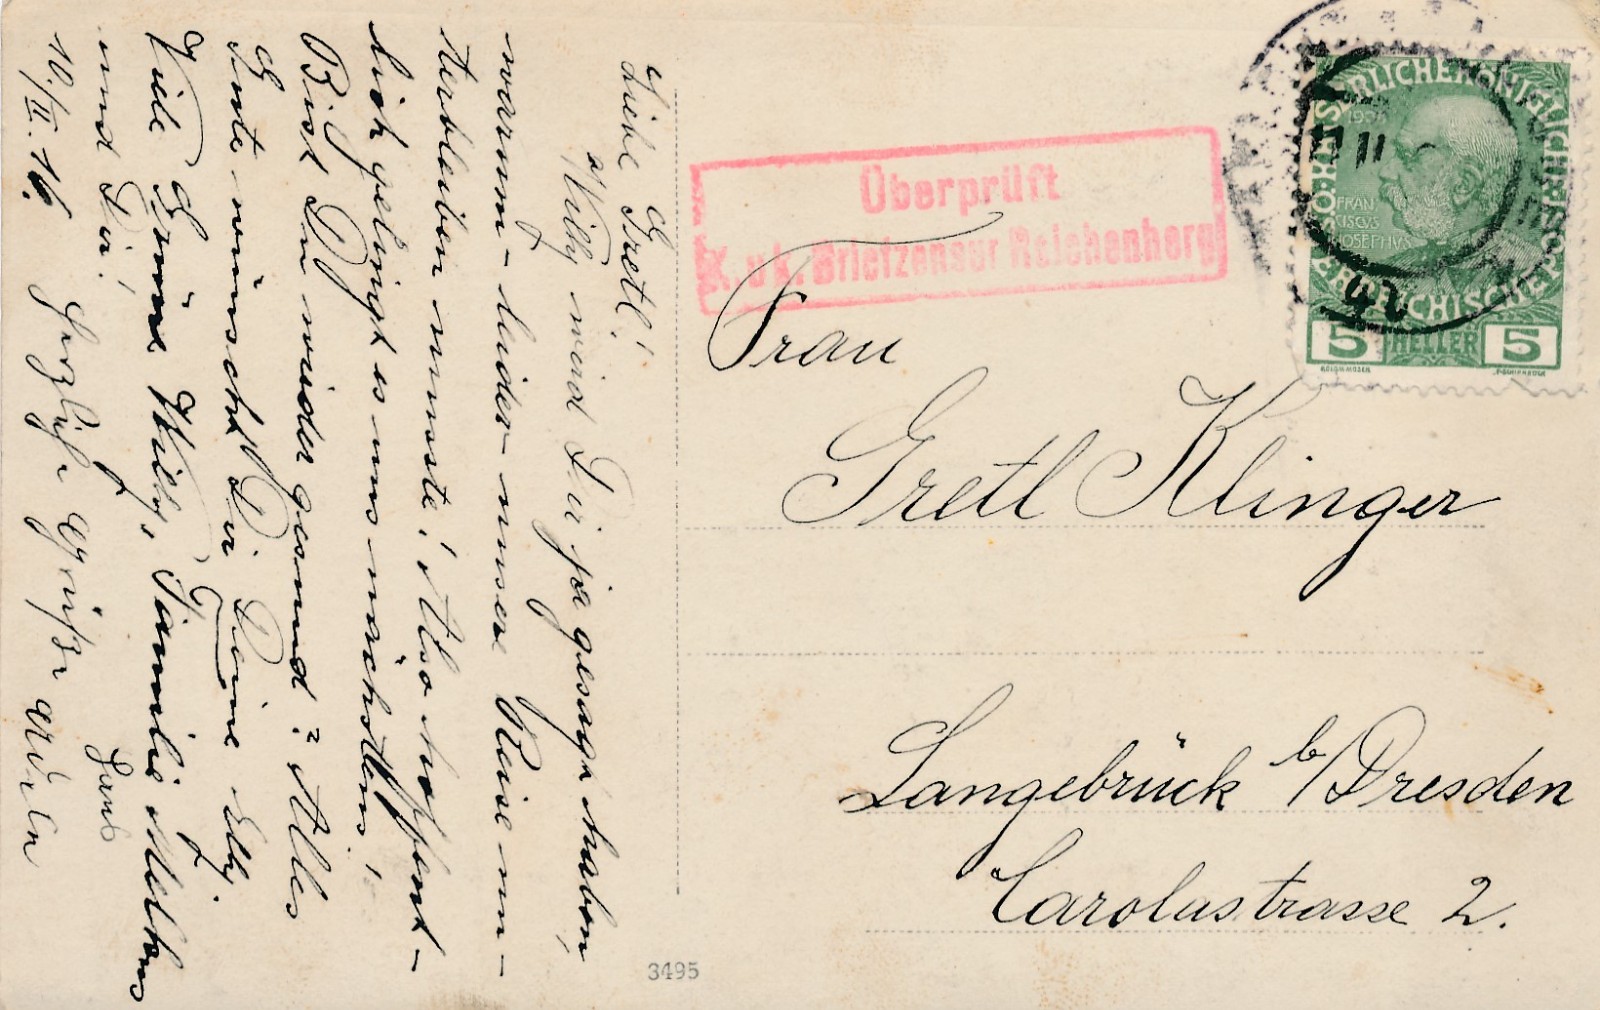 Liebe Gretl!
Willy wird Dir ja gesagt haben,
warum - leider - unsere Reise un-
terbleiben musste! Also hoffent-
lich gelingt es uns nächstens!
Bist Du wieder gesund? Alles
Gute wünscht Dir Deine Elly.
Viele Grüsse Willy, Familie
und Dir!
10./II. 16. Herzliche Grüsse
Überprüft
K. u k. Briefzensur Reichenberg
Frau
Gretl Klinger
Langebrück b/Dresden
Carolastrasse 2.
KAISERLICHE KÖNIGLICHE ÖSTERREICHISCHE POST
1908
FRAN
CISCVS
IOSEPHVS
5 HELLER 5
3495